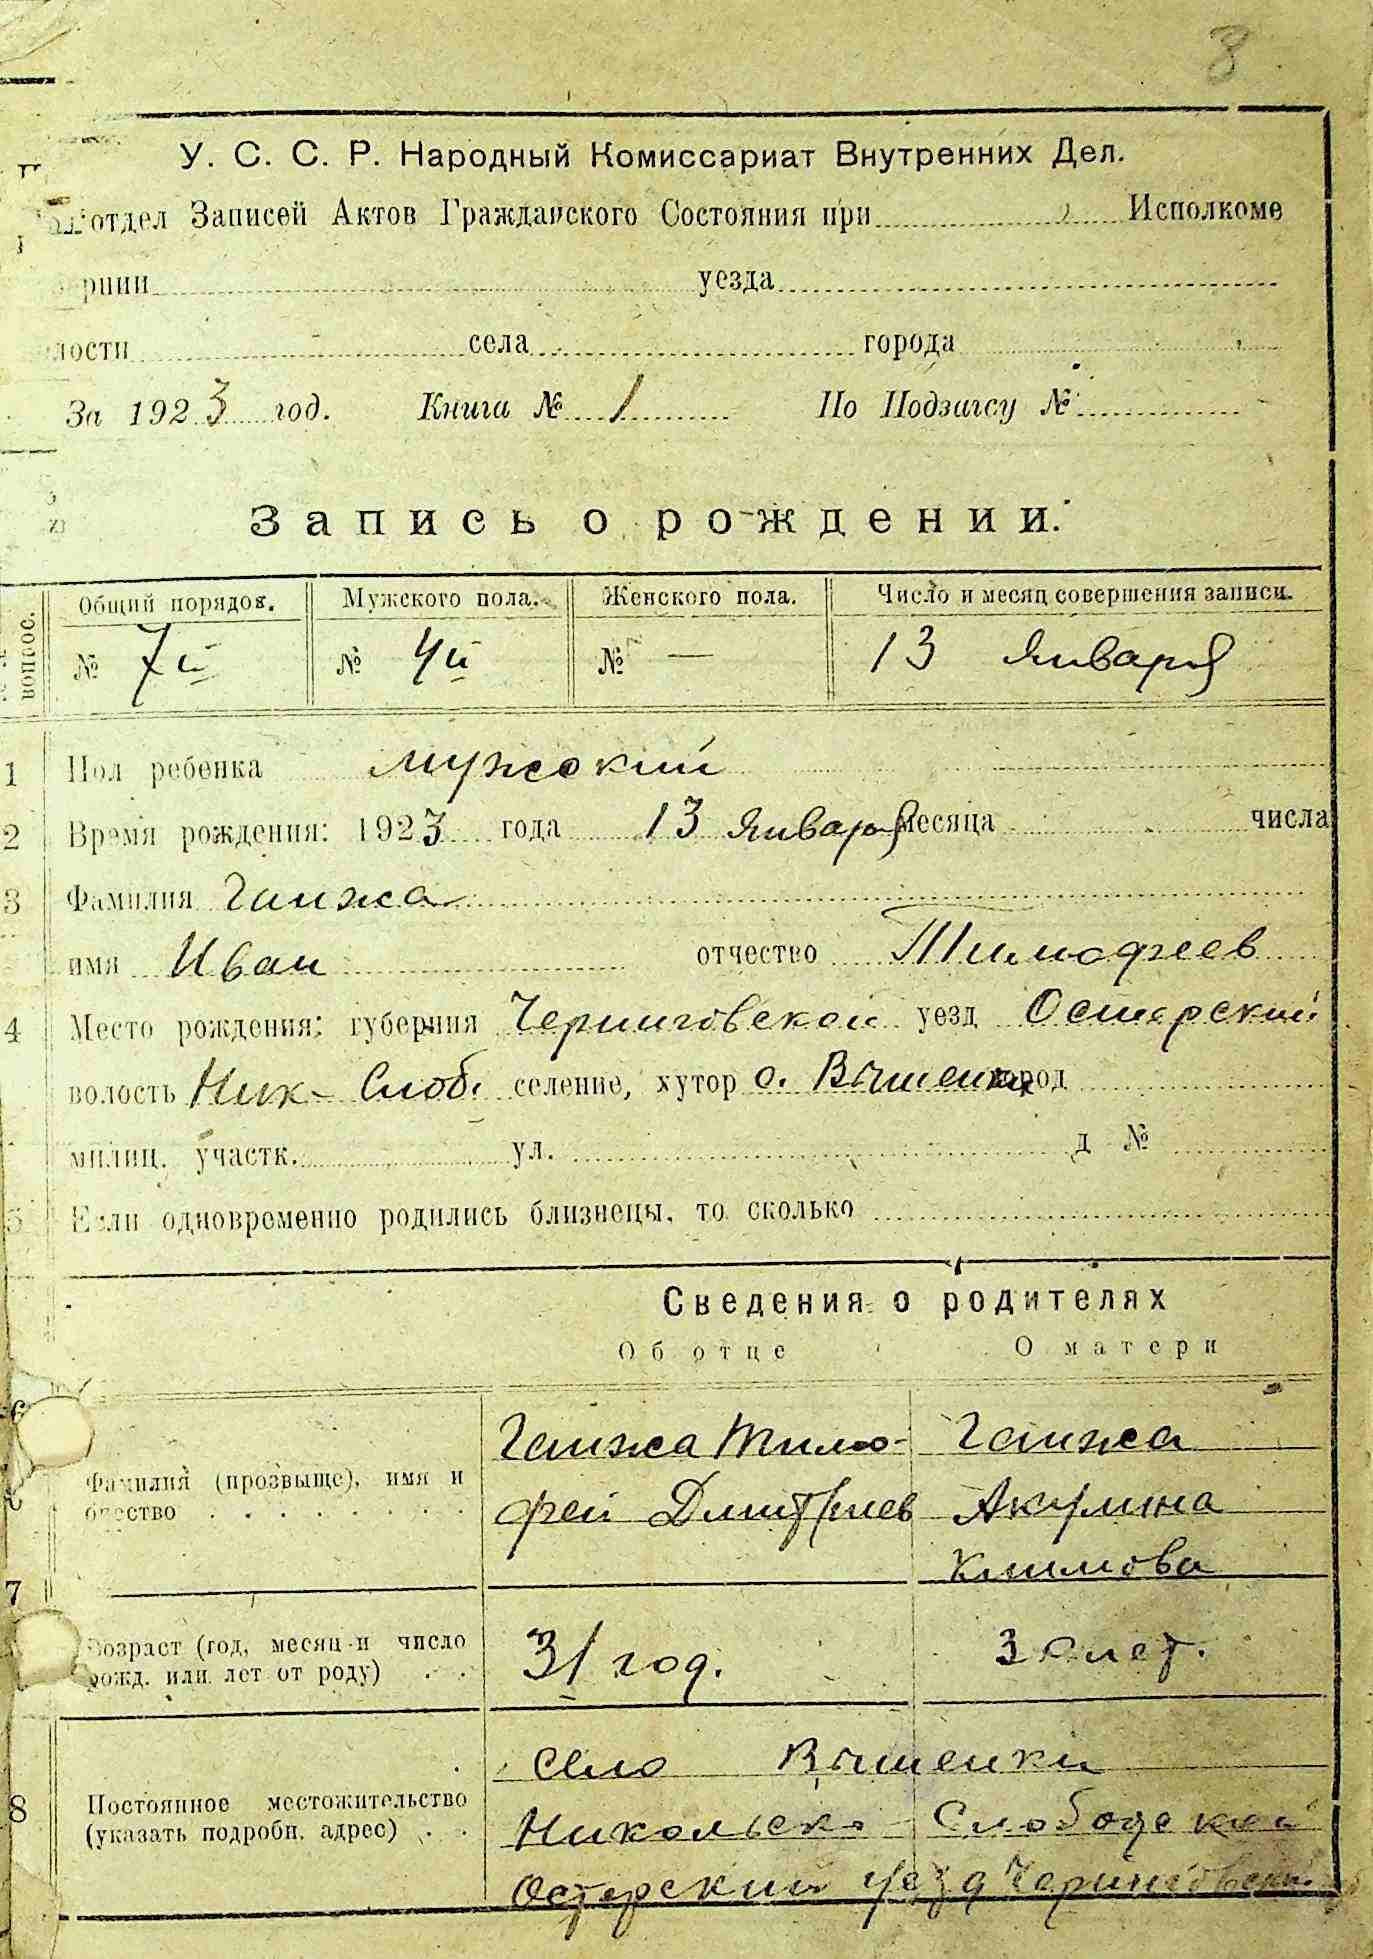 8
У. С. С. Р. Народный Комиссариат Внутренних Дел.
отдел Записей Актов Гражданского Состояния при Исполкоме
рнии уезда
лости села города
За 1923 год. Книга № 1 По Подзагсу №
Запись о рождении.
вопрос. Общий порядок. Мужского пола. Женского пола. Число и месяц совершения записи.
№ 7й № 4й № — 13 Января
1 Пол ребенка мужской
2 Время рождения: 1923 года 13 Января месяца числа
3 Фамилия Ганжа
имя Иван отчество Тимофеев
4 Место рождения: губерния Черниговской уезд Остерский
волость Ник-Слоб. селение, хутор с. Вишенки город
милиц. участк. ул. д №
5 Если одновременно родились близнецы, то сколько
Сведения о родителях
Об отце О матери
6 Ганжа Тимо- Ганжа
Фамилия (прозвыще), имя и
отчество фей Дмитриев Акулина
Климова
7 Возраст (год, месяц и число
рожд. или лет от роду) 31 год. 30 лет.
село Вишенки
8 Постоянное местожительство
(указать подробн. адрес) Никольско Слободской
Остерский уезд Черниговской